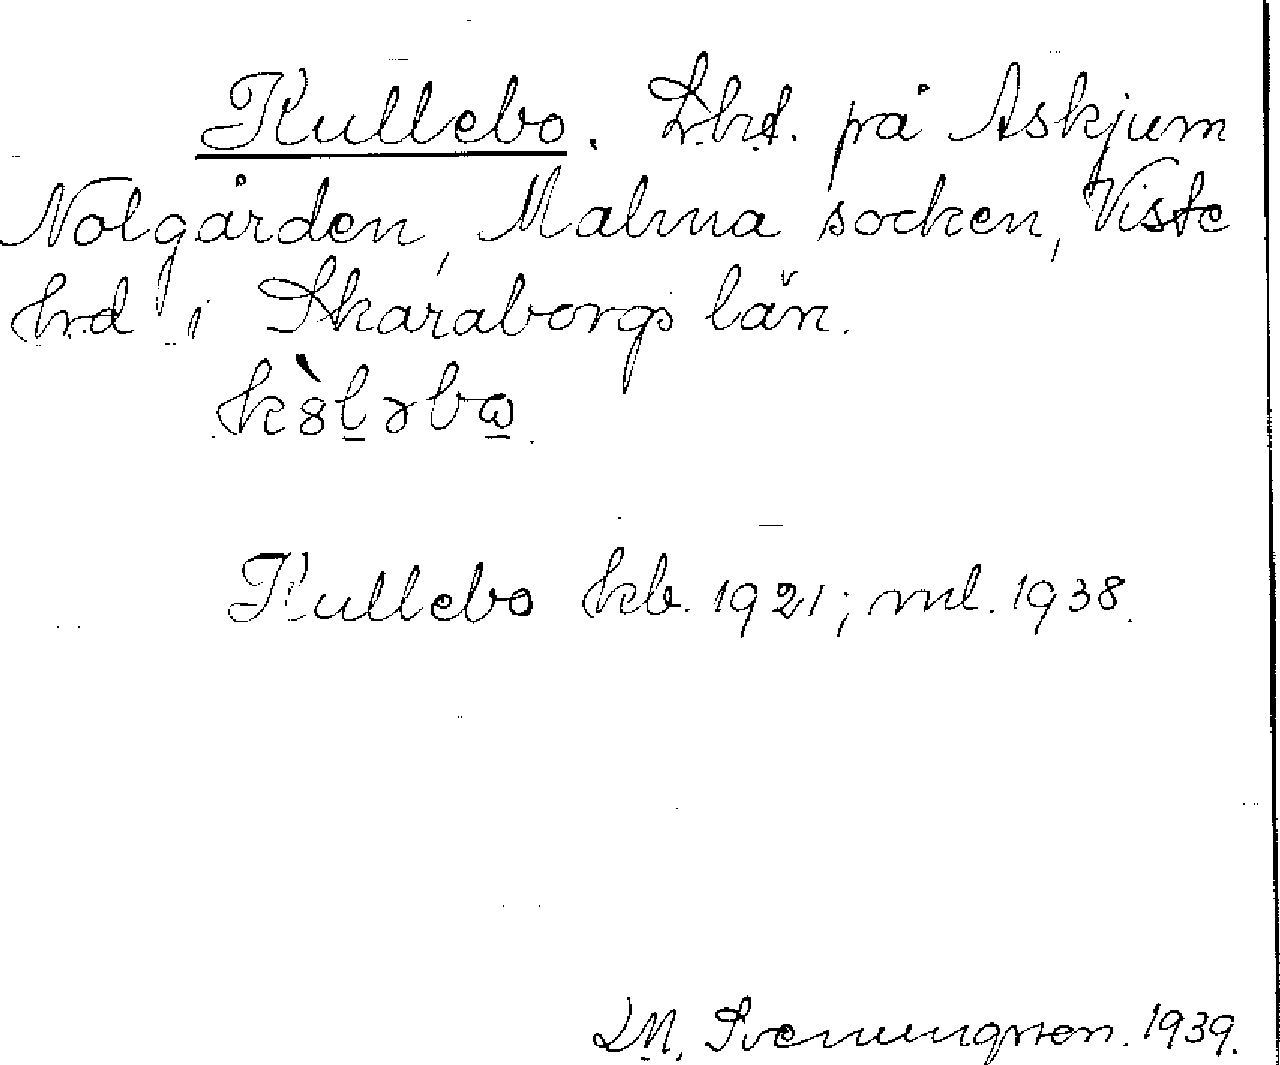 Kullebo. Lhd. på Askjum
Nolgården, Malma socken, Viste
hrd i Skaraborgs län.
k8̀l̠əbɷ̠.
Kullebo kb. 1921; ml. 1938.
LM. Svenungsson. 1939.